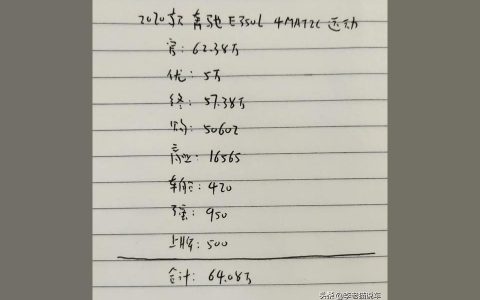 2020款 奔驰 E350L 4MATIC 运动
官: 62.38万
优: 5万
终: 57.38万
购: 50602
商业: 16565
车船: 420
强: 950
上牌: 500
合计: 64.08万
头条@李老猫说车